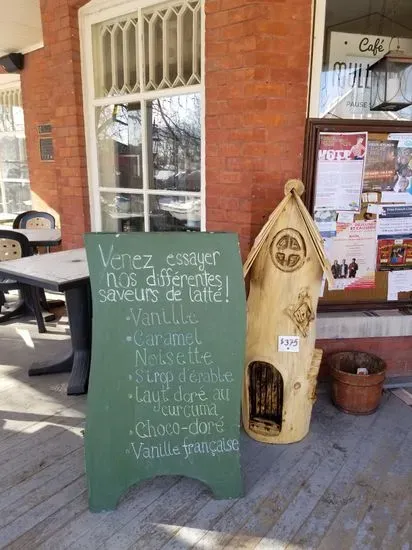 Venez essayer
nos différentes
saveurs de latte!
• Vanille
• Caramel
Noisette
• Sirop d'érable
• Lait doré au
curcuma
• Choco-doré
• Vanille française
$375
Café